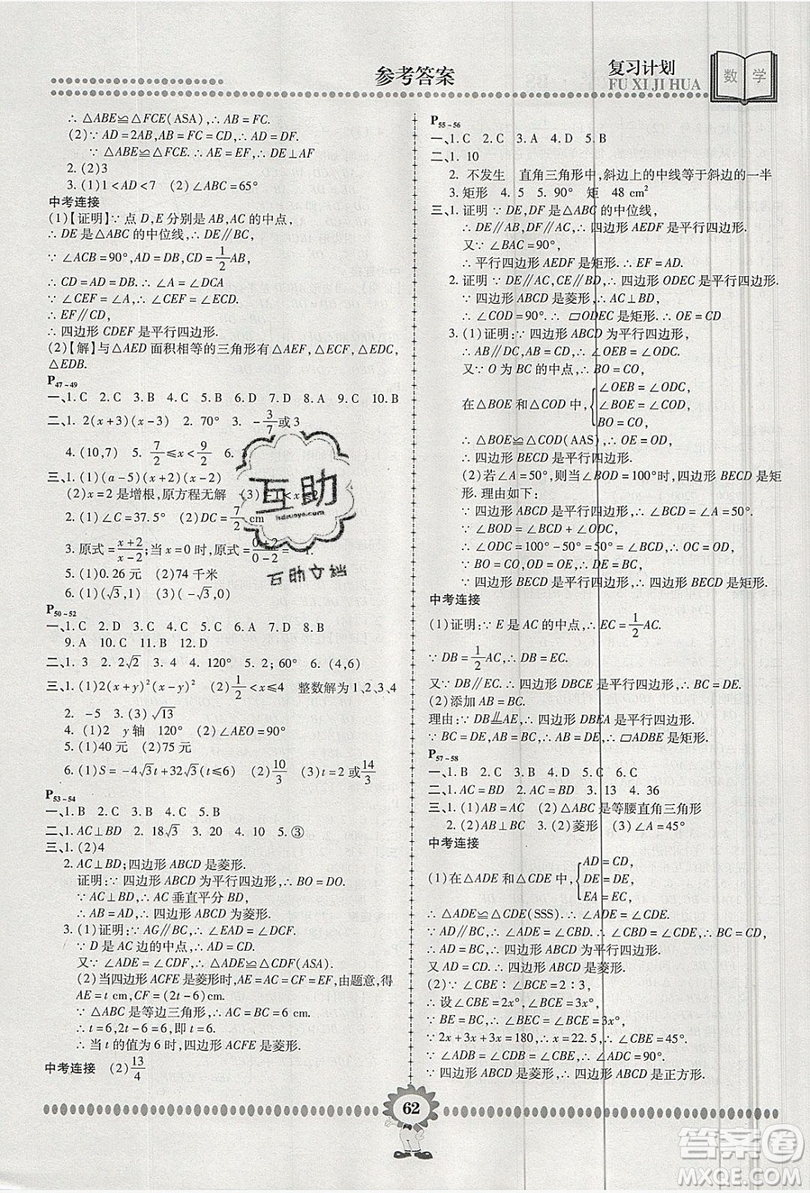 参考答案
复习计划
FU XI JI HUA
数 学
∴ △ABE≌△FCE(ASA),∴ AB = FC.
(2)∵ AD = 2AB,AB = FC = CD,∴ AD = DF.
∵ △ABE≌△FCE,∴ AE = EF,∴ DE⊥AF
2. (2)3
3. (1)1<AD<7 (2)∠ABC = 65°
中考连接
(1)【证明】∵ 点 D,E 分别是 AB,AC 的中点,
∴ DE 是△ABC 的中位线,∴ DE∥BC,
∵ ∠ACB = 90°,∴ CD = 1/2 AB = AD,
∴ CD = AD = DB,∴ ∠A = ∠DCA
∵ ∠CEF = ∠A,∴ ∠CEF = ∠ECD.
∴ EF∥CD,
∴ 四边形 CDEF 是平行四边形.
(2)【解】与△AED 面积相等的三角形有△AEF,△ECF,△ECD,
△EDB.
P47-49
一、1. C 2. C 3. A 4. B 5. D 6. B 7. B 8. A 9. C 10. B
二、1. 2(x+3)(x-3) 2. 70° 3. -3/7 或 3
4. (10,7) 5. 7/2 ≤x< 9/2 6.
三、1. (1)(a-5)(x+2)
(2)x = 2 是增根,原方程无解 (3)
2. (1)∠C = 37.5° (2)DC = 7/2 cm
3. 原式 = (x+2)/(x-2);当 x = 0 时,原式 = (0+2)/(0-2) =
5. (1)0.26 元 (2)74 千米
6. (1)(√3,1) (2)(√3,
互助
互助文档
P50-52
一、1. C 2. B 3. C 4. B 5. C 6. B 7. C 8. D
9. A 10. C 11. B 12. C
二、1. 3 2. 15 3. 2√2 4. 120° 5. 60° 6. (4,6)
三、1. (1)2(x+y)²(x-y)² (2) 1/2 <x≤4 整数解为 1、2、3、4
2. -5 3. (3)√13
4. (1)2 y 轴 120° (2)∠AEO = 90°
5. (1)40 元 (2)75 元
6. (1)S = -4√3t+32√3(t≤6) (2)10/3 (3)t = 2 或 14/3
P53-54
一、1. B 2. C 3. D 4. C 5. B 6. B
二、1. AC⊥BD 2. 18√3 3. 20 4. 10 5. ③
三、1. (2)4
2. AC⊥BD;四边形 ABCD 是菱形.
证明:∵ 四边形 ABCD 为平行四边形,∴ BO = DO.
∵ AC⊥BD,∴ AC 垂直平分 BD,
∴ AB = AD,∴ 四边形 ABCD 为菱形.
3. (1)证明:∵ AG∥BC,∴ ∠EAD = ∠DCF.
∵ D 是 AC 边的中点,∴ AD = CD.
又∵ ∠ADE = ∠CDF,∴ △ADE≌△CDF(ASA).
(2)当四边形 ACFE 是菱形时,AE = AC = CF = EF,由题意,得
AE = t cm,CF = (2t-6) cm.
∵ △ABC 是等边三角形,∴ AC = BC = 6 cm.
∴ t = 6,2t-6 = 6,即 t = 6.
∴ 当 t 的值为 6 时,四边形 ACFE 是菱形.
中考连接 (2)13/4
P55-56
一、1. C 2. C 3. A 4. D 5. B
二、1. 10
2. 不发生 直角三角形中,斜边上的中线等于斜边的一半
3. 矩形 4. 5 5. 90° 矩 48 cm²
三、1. 证明:∵ DE,DF 是△ABC 的中位线,
∴ DE∥AB,DF∥AC,∴ 四边形 AEDF 是平行四边形.
又∵ ∠BAC = 90°,
∴ 平行四边形 AEDF 是矩形.
2. 证明:∵ DE∥AC,CE∥BD,∴ 四边形 ODEC 是平行四边形.
∵ 四边形 ABCD 是菱形,∴ AC⊥BD,
∴ ∠COD = 90°.∴ ▱ODEC 是矩形.∴ OE = CD
3. (1)证明:∵ 四边形 ABCD 为平行四边形,
∴ AB∥DC,AB = CD,∴ ∠OEB = ∠ODC,
又∵ O 为 BC 的中点,∴ BO = CO,
在△BOE 和△COD 中,{∠OEB = ∠ODC,
∠BOE = ∠COD,
BO = CO,
∴ △BOE≌△COD(AAS);∴ OE = OD,
∴ 四边形 BECD 是平行四边形;
(2)若∠A = 50°,则当∠BOD = 100°时,四边形 BECD 是矩
形. 理由如下:
∵ 四边形 ABCD 是平行四边形,∴ ∠BCD = ∠A = 50°,
∵ ∠BOD = ∠BCD+∠ODC,
∴ ∠ODC = 100°-50° = 50° = ∠BCD,
∴ OC = OD,∵ BO = CO,OD = OE,∴ DE = BC,
∵ 四边形 BECD 是平行四边形,∴ 四边形 BECD 是矩形;
中考连接
(1)证明:∵ E 是 AC 的中点,∴ EC = 1/2 AC.
∵ DB = 1/2 AC,∴ DB = EC.
又∵ DB∥EC,∴ 四边形 DBCE 是平行四边形. ∴ BC = DE.
(2)添加 AB = BC.
理由:∵ DB⫽AE,∴ 四边形 DBEA 是平行四边形.
∵ BC = DE,AB = BC,∴ AB = DE,∴ ▱ADBE 是矩形.
P57-58
一、1. B 2. D 3. C 4. D 5. B
二、1. AC = BD 2. AC = BD 3. 15 4. 2 4. 36
三、1. (1)AB = AC (2)△ABC 是等腰直角三角形
2. 10√2 m 3. (2)菱形 (3)∠A = 45°
中考连接
(1)在△ADE 和△CDE 中,{AD = CD,
DE = DE,
EA = EC,
∴ △ADE≌△CDE(SSS),∴ ∠ADE = ∠CDE.
∵ AD∥BC,∴ ∠ADE = ∠CBD.∴ ∠CDE = ∠CBD,∴ BC = CD.
∵ AD = CD,∴ BC = AD,∴ 四边形 ABCD 为平行四边形.
又 AD = CD,∴ 四边形 ABCD 是菱形.
(2)∵ ∠CBE∶∠BCE = 2∶3,
∴ 设∠CBE = 2x°,∠BCE = 3x°,
∵ BE = BC,∴ ∠BEC = ∠BCE = 3x°,
∵ 2x+3x+3x = 180,∴ x = 22.5,∴ ∠CBE = 45°.
∵ ∠ABE = ∠CBE = 45°,∴ ∠ABC = 90°,
∵ 四边形 ABCD 是菱形,∴ 四边形 ABCD 是正方形.
62
答案圈
MXQE.COM